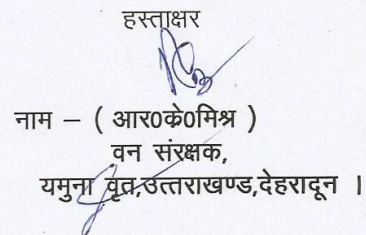 हस्ताक्षर
नाम – ( आर0के0मिश्र )
वन संरक्षक,
यमुना वृत,उत्तराखण्ड,देहरादून ।